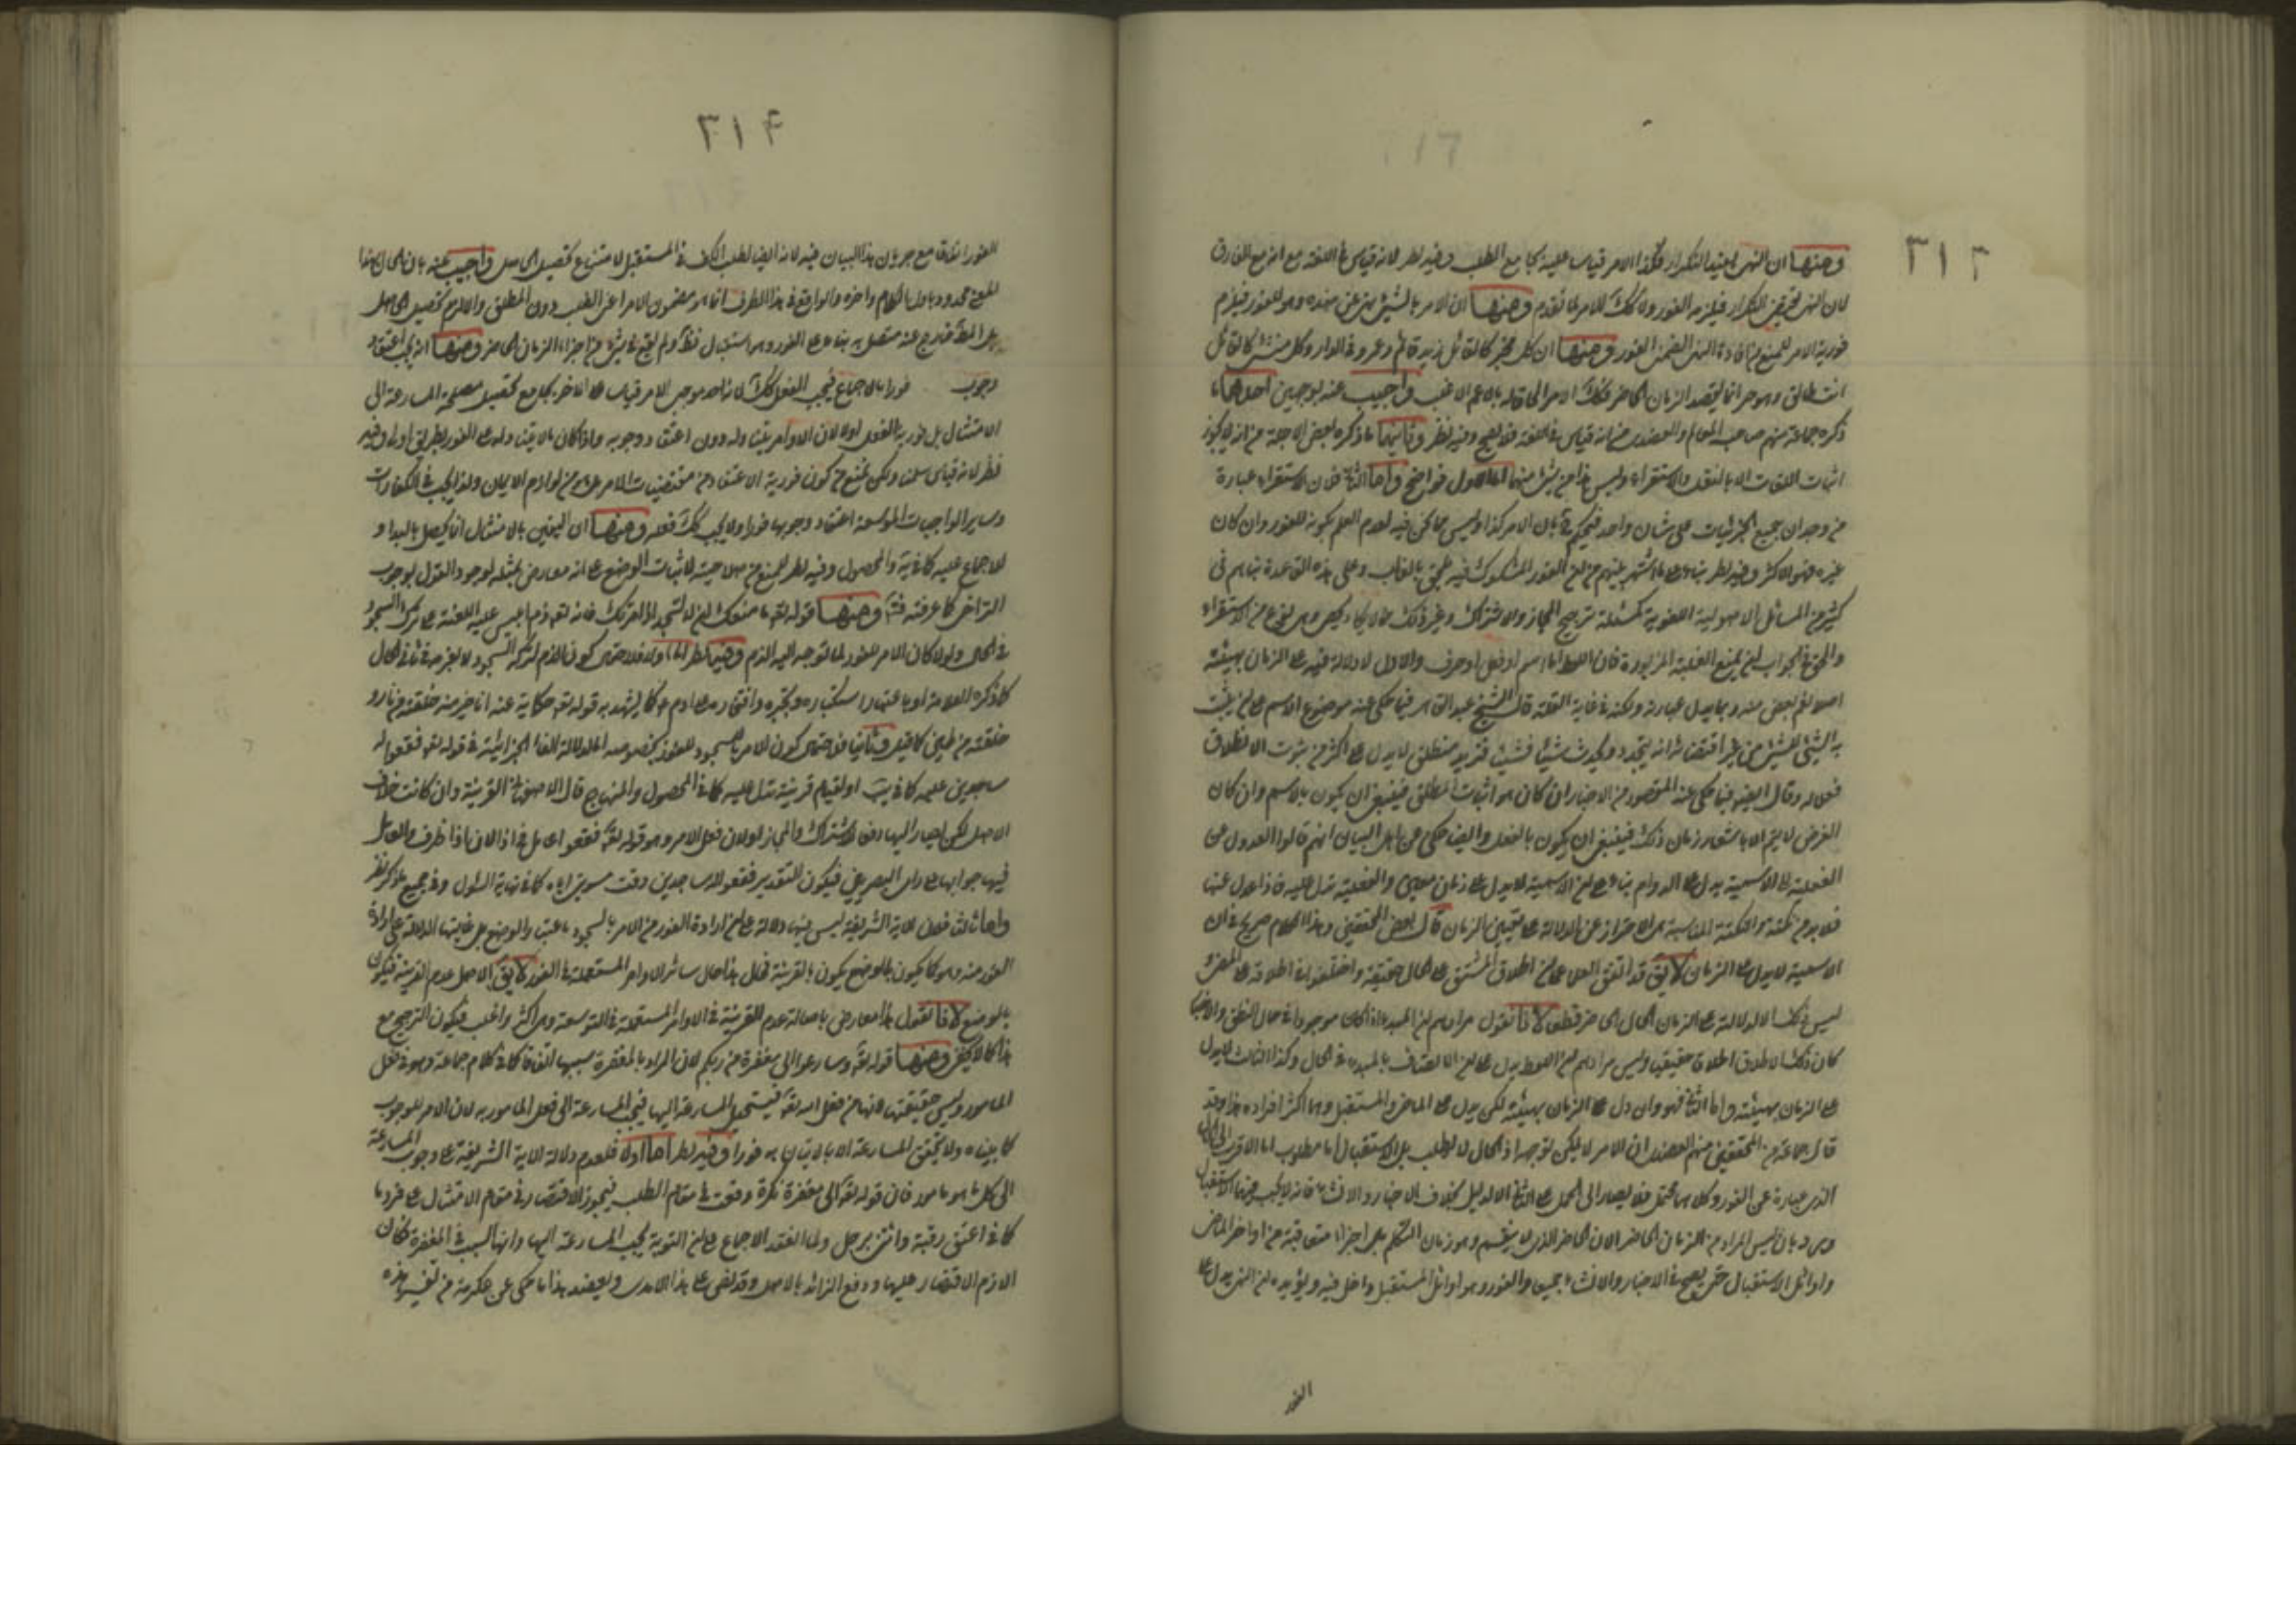 ٣١٣
ومنها ان النهى يفيد التكرار فكذا الامر قياسا عليه بجامع الطلب وفيه نظر لانه قياس فى اللغة مع انه مع الفارق
لان النهى التكرار فيلزمه الفور ولا كك الامر لما تقدم ومنها ان الامر بالشىء نهى عن ضده وهو للفور فيلزم
فورية الامر النهى الفور ومنها ان كل مخبر كالقائل زيد قائم وعمرو فى الدار وكل منشئ كالقائل
انت طالق وهو حر انما يقصد الزمان الحاضر فكك الامر الحاقا له بالاعم الاغلب واجيب عنه بوجهين احدهما ما
ذكره جماعة منهم صاحب المعالم والعضدى من انه قياس فى اللغة فلا يصح وفيه نظر وثانيهما ما ذكره بعض الاجلة من انه لا يجوز
اثبات اللغات الا بالنقل والاستقراء وليس هذا من شىء منهما اما الاول فواضح واما الثانى فلان الاستقراء عبارة
من وجدان جميع الجزئيات على شان واحد فيحكم بان الامر كذا وليس مما نحن فيه لعدم العلم بكونه للفور وان كان
غيره هو الاكثر وفيه نظر بناء على ما اشتهر بينهم من ان الفور المشكوك فيه يلحق بالغالب وعلى هذه القاعدة بناهم فى
كثير من المسائل الاصولية اللغوية كمسئلة ترجيح المجاز والاشتراك وغير ذلك مما لا يكاد يحصى وهى نوع من الاستقراء
والحق فى الجواب ان يمنع الغلبة المزبورة فان اللفظ اما اسم او فعل او حرف والاول لا دلالة فيه على الزمان بهيئته
قال الشيخ عبد القاهر فيما حكى عنه موضوع الاسم على ان يثبت
به الشىء للشىء من غير اقتضاء انه يتجدد ويحدث شيئا فشيئا فزيد منطلق لا يدل على اكثر من ثبوت الانطلاق
فعلا له وقال ايضا فيما حكى عنه المقصود من الاخبار ان كان هو اثبات المطلق فينبغى ان يكون بالاسم وان كان
الغرض لا يتم الا باشعار زمان ذلك فينبغى ان يكون بالفعل وايضا حكى عن اهل البيان انهم قالوا العدول عن
الفعلية الى الاسمية يدل على الدوام بناء على ان الاسمية لا يدل على زمان معين والفعلية تدل عليه فاذا عدل عنها
فلا بد من نكتة والنكتة المناسبة هى الاحتراز عن الدلالة على تعيين الزمان قال بعض المحققين وهذا الكلام صريح فى ان
الاسمية لا يدل على الزمان لا يق قد اتفق العلماء على ان اطلاق المشتق على الحال حقيقة واختلفوا فى اطلاقه على الماضى
ليس ذلك الا لدلالته على الزمان الحال الحاضر قطعا لانا نقول مرادهم ان المبدء اذا كان موجودا فى حال النطق والاخبار
كان ذلك الاطلاق اطلاقا حقيقيا وليس مرادهم ان اللفظ يدل على ان الاتصاف بالمبدء فى الحال وكذا الثالث لا يدل
على الزمان بهيئته واما الثانى فهو وان دل على الزمان بهيئته لكن يدل على الماضى والمستقبل وهما اكثر افراده هذا وقد
قال جماعة من المحققين منهم العضدى ان الامر لا يمكن توجهه اذ الحال لا يطلب بل الاستقبال اما مطلوب اما الاقرب الى الحال
الذى عبارة عن الفور وكلاهما محتمل فلا يصار الى الحمل على الثانى الا لدليل بخلاف الاخبار والانشاء فانه لا يجب فيهما الاستقبال
ورد بان ليس المراد من الزمان الحاضر الان الحاضر الذى لا ينقسم وهو زمان التكلم بل اجزاء متعاقبة من اواخر الماضى
واوائل الاستقبال حتى يصح فى الاخبار والانشاء جميعا والفور وهو اوائل المستقبل داخل فيه ويؤيده ان النهى يدل على
الفور
٣١٤
الفور اتفاقا مع جريان هذا البيان فيه لانه ايضا لطلب الكف فى المستقبل لامتناع تحصيل الحاصل واجيب عنه بان الحال هنا
محدود باول الكلام واخره والواقع فى هذا الظرف انما هو مضمون الامر اعنى الطلب دون المطلق واللازم تحصيل الحاصل
خارج عنه متصل به بناء على الفور وهو استقبال ولم يقع فى شىء من اجزاء الزمان الحاضر ومنها انه يجب اعتقاد
وجوب فورا بالاجماع فيجب الفعل كك لانه احد موجبى الامر قياسا على الاخر بجامع تحصيل مصلحة المسارعة الى
الامتثال بل فورية الفعل اولى لان الاوامر يتناوله دون اعتقاد وجوبه واذا كان ما لا يتناوله على الفور بطريق اولى وفيه
نظر لانه قياس سلمنا ولكن نمنع من كون فورية الاعتقاد من مقتضيات الامر بل هى من لوازم الايمان ولذا يجب فى الكفارات
وساير الواجبات الموسعة اعتقاد وجوبها فورا ولا يجب كك فعله ومنها ان اليقين بالامتثال انما يحصل بالبدار
للاجماع عليه كما فى والمحصول وفيه نظر للمنع من صلاحيته لاثبات الوضع على انه معارض بمثله لوجود القول بوجوب
التراخى كما عرفته ومنها قوله تعالى ما منعك ان لا تسجد اذ امرتك فانه تعالى ذم ابليس عليه اللعنة على ترك السجود
فى الحال ولولا كان الامر للفور لما توجه اليه الذم وفيه نظر اما اولا فلاحتمال كون الذم لترك السجود لا لعزمه فى ثانى الحال
كما ذكره العلامة او باعتبار استكباره وتجبره وافتخاره على ادم كما يشهد به قوله تعالى حكاية عنه انا خير منه خلقتنى من نار و
خلقته من طين كما قيل وثانيا فلاحتمال كون الامر بالسجود للفور بخصوصه لدلالة الفاء الجزائية فى قوله تعالى فقعوا له
ساجدين عليه كما فى او لقيام قرينة تدل عليه كما فى المحصول والمنهاج قال الاصفهانى القرينة وان كانت خلاف
الاصل لكن يصار اليها دفعا للاشتراك والمجاز او لان فعل الامر وهو قوله تعالى فقعوا عامل فى اذا لان اذا ظرف والعامل
فيها جوابها على راى البصريين فيكون التقدير فقعوا له ساجدين وقت تسويتى اياه كما فى نهاية السئول وفى جميع ما ذكر نظر
واما ثالثا فلان الاية الشريفة ليس فيها دلالة على ان ارادة الفور من الامر بالسجود باعتبار الوضع بل غايتها الدلالة على ارادة
الفور منه وهو كما يكون بالوضع يكون بالقرينة فلعل هذا حال سائر الاوامر المستعملة فى الفور لا يق الاصل عدم القرينة فيكون
بالوضع لانا نقول هذا معارض باصالة عدم القرينة فى الاوامر المستعملة فى التوسعة وهى اكثر واغلب فيكون الترجيح مع
هذا كما لا يخفى ومنها قوله تعالى وسارعوا الى مغفرة من ربكم لان المراد بالمغفرة سببها اتفاقا كما فى كلام جماعة وهو فعل
المامور وليس حقيقتها لانها من فعل الله تعالى فيستحيل المسارعة اليها فيجب المسارعة الى فعل المامور به لان الامر للوجوب
كما بيناه ولا يتحقق المسارعة الا بالاتيان به فورا وفيه نظر اما اولا فلعدم دلالة الاية الشريفة على وجوب المسارعة
الى كل ما هو مامور فان قوله تعالى الى مغفرة نكرة وقعت فى مقام الطلب فيجوز الاقتصار فى مقام الامتثال على فرد ما
كما فى اعتق رقبة وائتنى برجل ولما انعقد الاجماع على ان التوبة يجب المسارعة اليها وانها السبب فى المغفرة كان
اللازم الاقتصار عليها ودفع الزائد بالاصل وقد نص على هذا الامدى ويعضد هذا ما حكى عن عكرمة من تفسير هذه